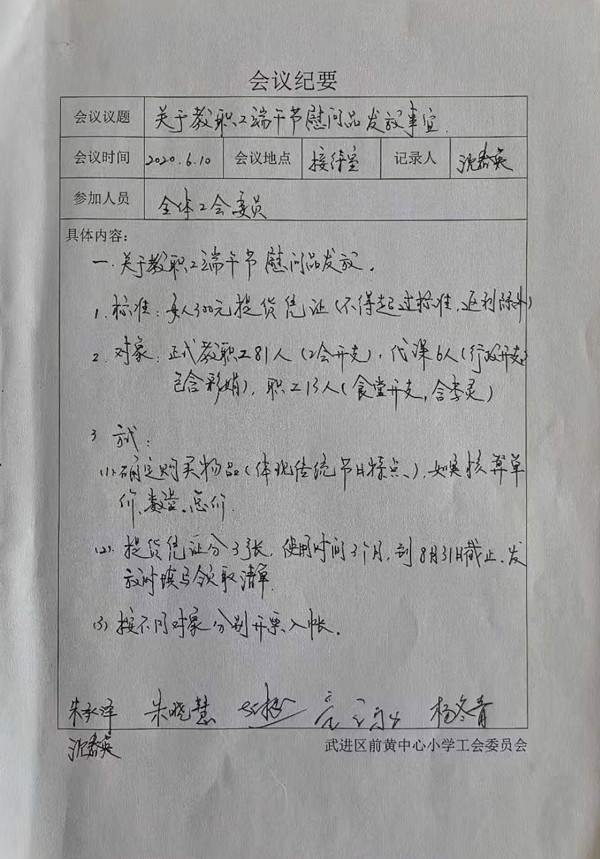 会议纪要
会议议题 关于教职工端午节慰问品发放事宜.
会议时间 2020.6.10 会议地点 接待室 记录人
参加人员 全体工会委员
具体内容:
一.关于教职工端午节慰问品发放.
1.标准:每人300元提货凭证(不得超过标准,返利除外)
2.对象:正式教职工81人(工会开支),代课6人(行政开支,
包含彩娟),职工13人(食堂开支,含李灵)
3 方式:
(1).确定购买物品(体现传统节日特点),如实核算单
价、数量、总价.
(2).提货凭证分3张,使用时间3个月,到8月31日截止.发
放时填写领取清单.
(3)按不同对象分别开票入帐.
朱晓慧 杨冬青
武进区前黄中心小学工会委员会